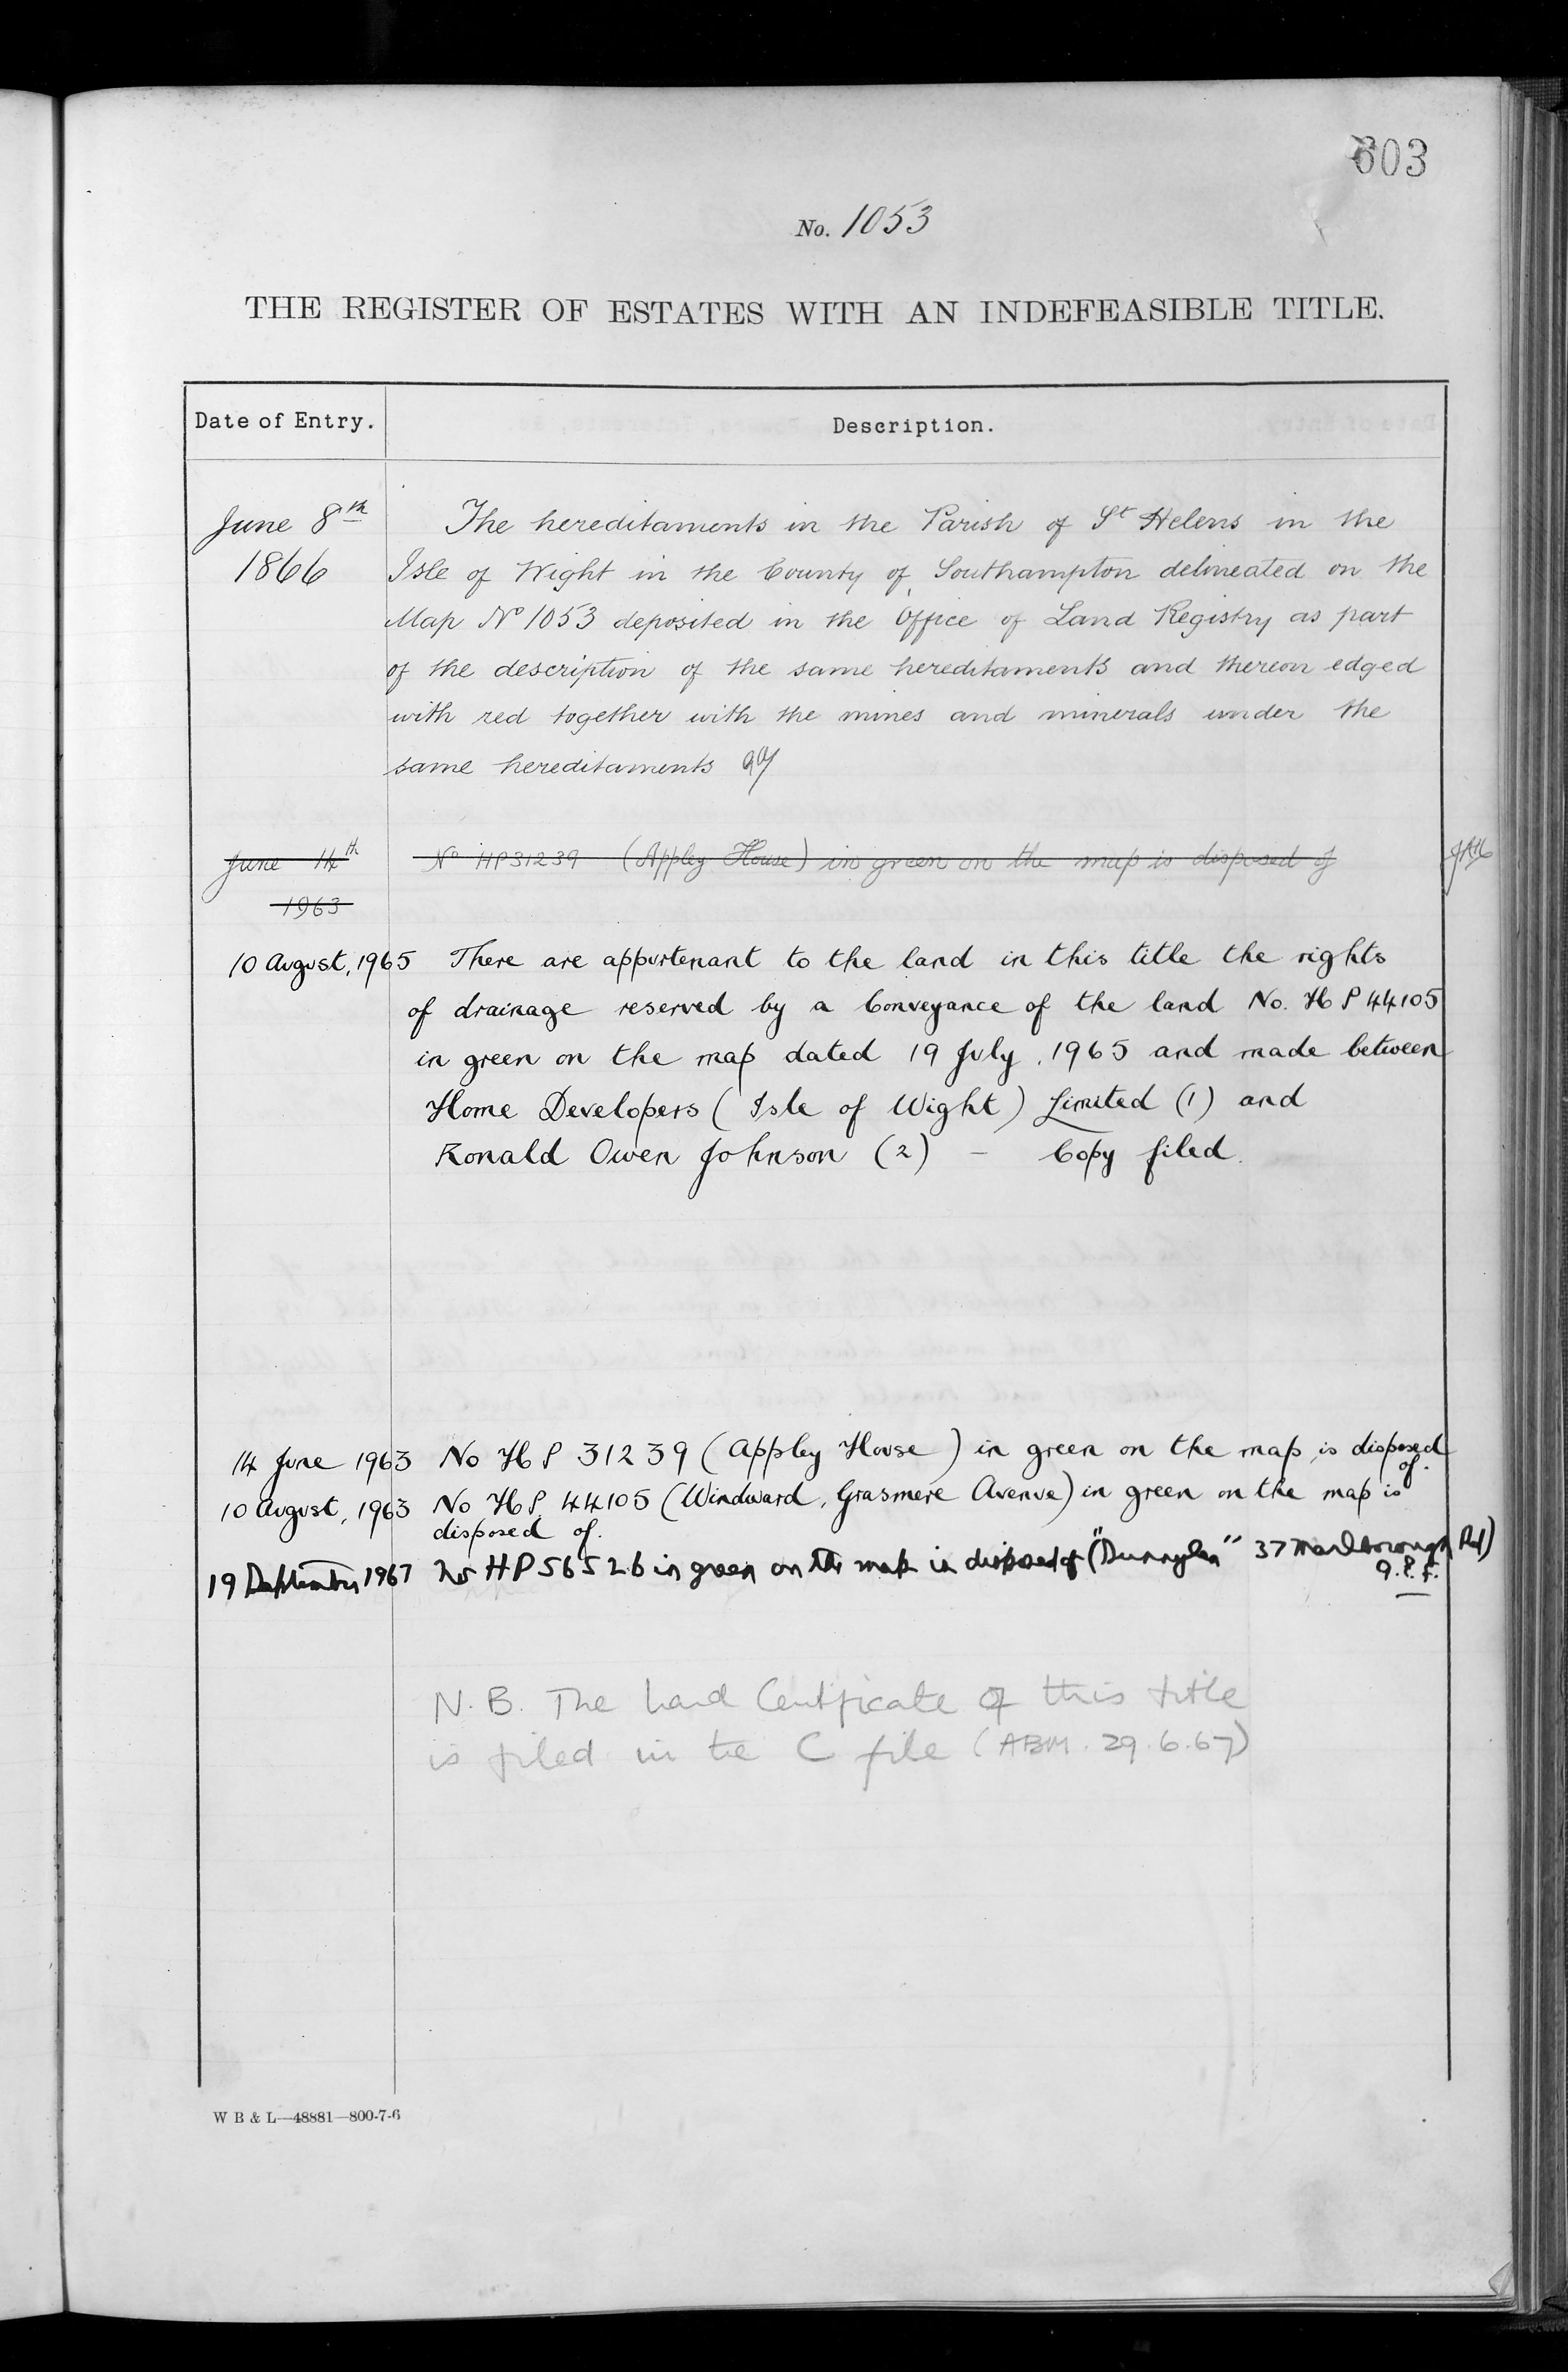 603
No. 1053
THE REGISTER OF ESTATES WITH AN INDEFEASIBLE TITLE.
Date of Entry. Description.
June 8th The hereditaments in the Parish of St Helens in the
1866 Isle of Wight in the County of Southampton delineated on the
Map No 1053 deposited in the Office of Land Registry as part
of the description of the same hereditaments and thereon edged
with red together with the mines and minerals under the
same hereditaments
June 14th No HP31239 (Appley House) in green on the map is disposed of
1963
10 August, 1965 There are appurtenant to the land in this title the rights
of drainage reserved by a Conveyance of the land No. HP44105
in green on the map dated 19 July, 1965 and made between
Home Developers (Isle of Wight) Limited (1) and
Ronald Owen Johnson (2) - Copy filed.
14 June 1963 No HP 31239 (Appley House) in green on the map is disposed
of.
10 August, 1963 No HP. 44105 (Windward, Grasmere Avenue) in green on the map is
disposed of.
19 September 1967 No HP56526 in green on the map is disposed of ("Dunnyglen" 37 Marlborough Rd)
N.B. The Land Certificate of this title
is filed in the C file (ABM. 29.6.67)
W B & L—48881—800-7-6